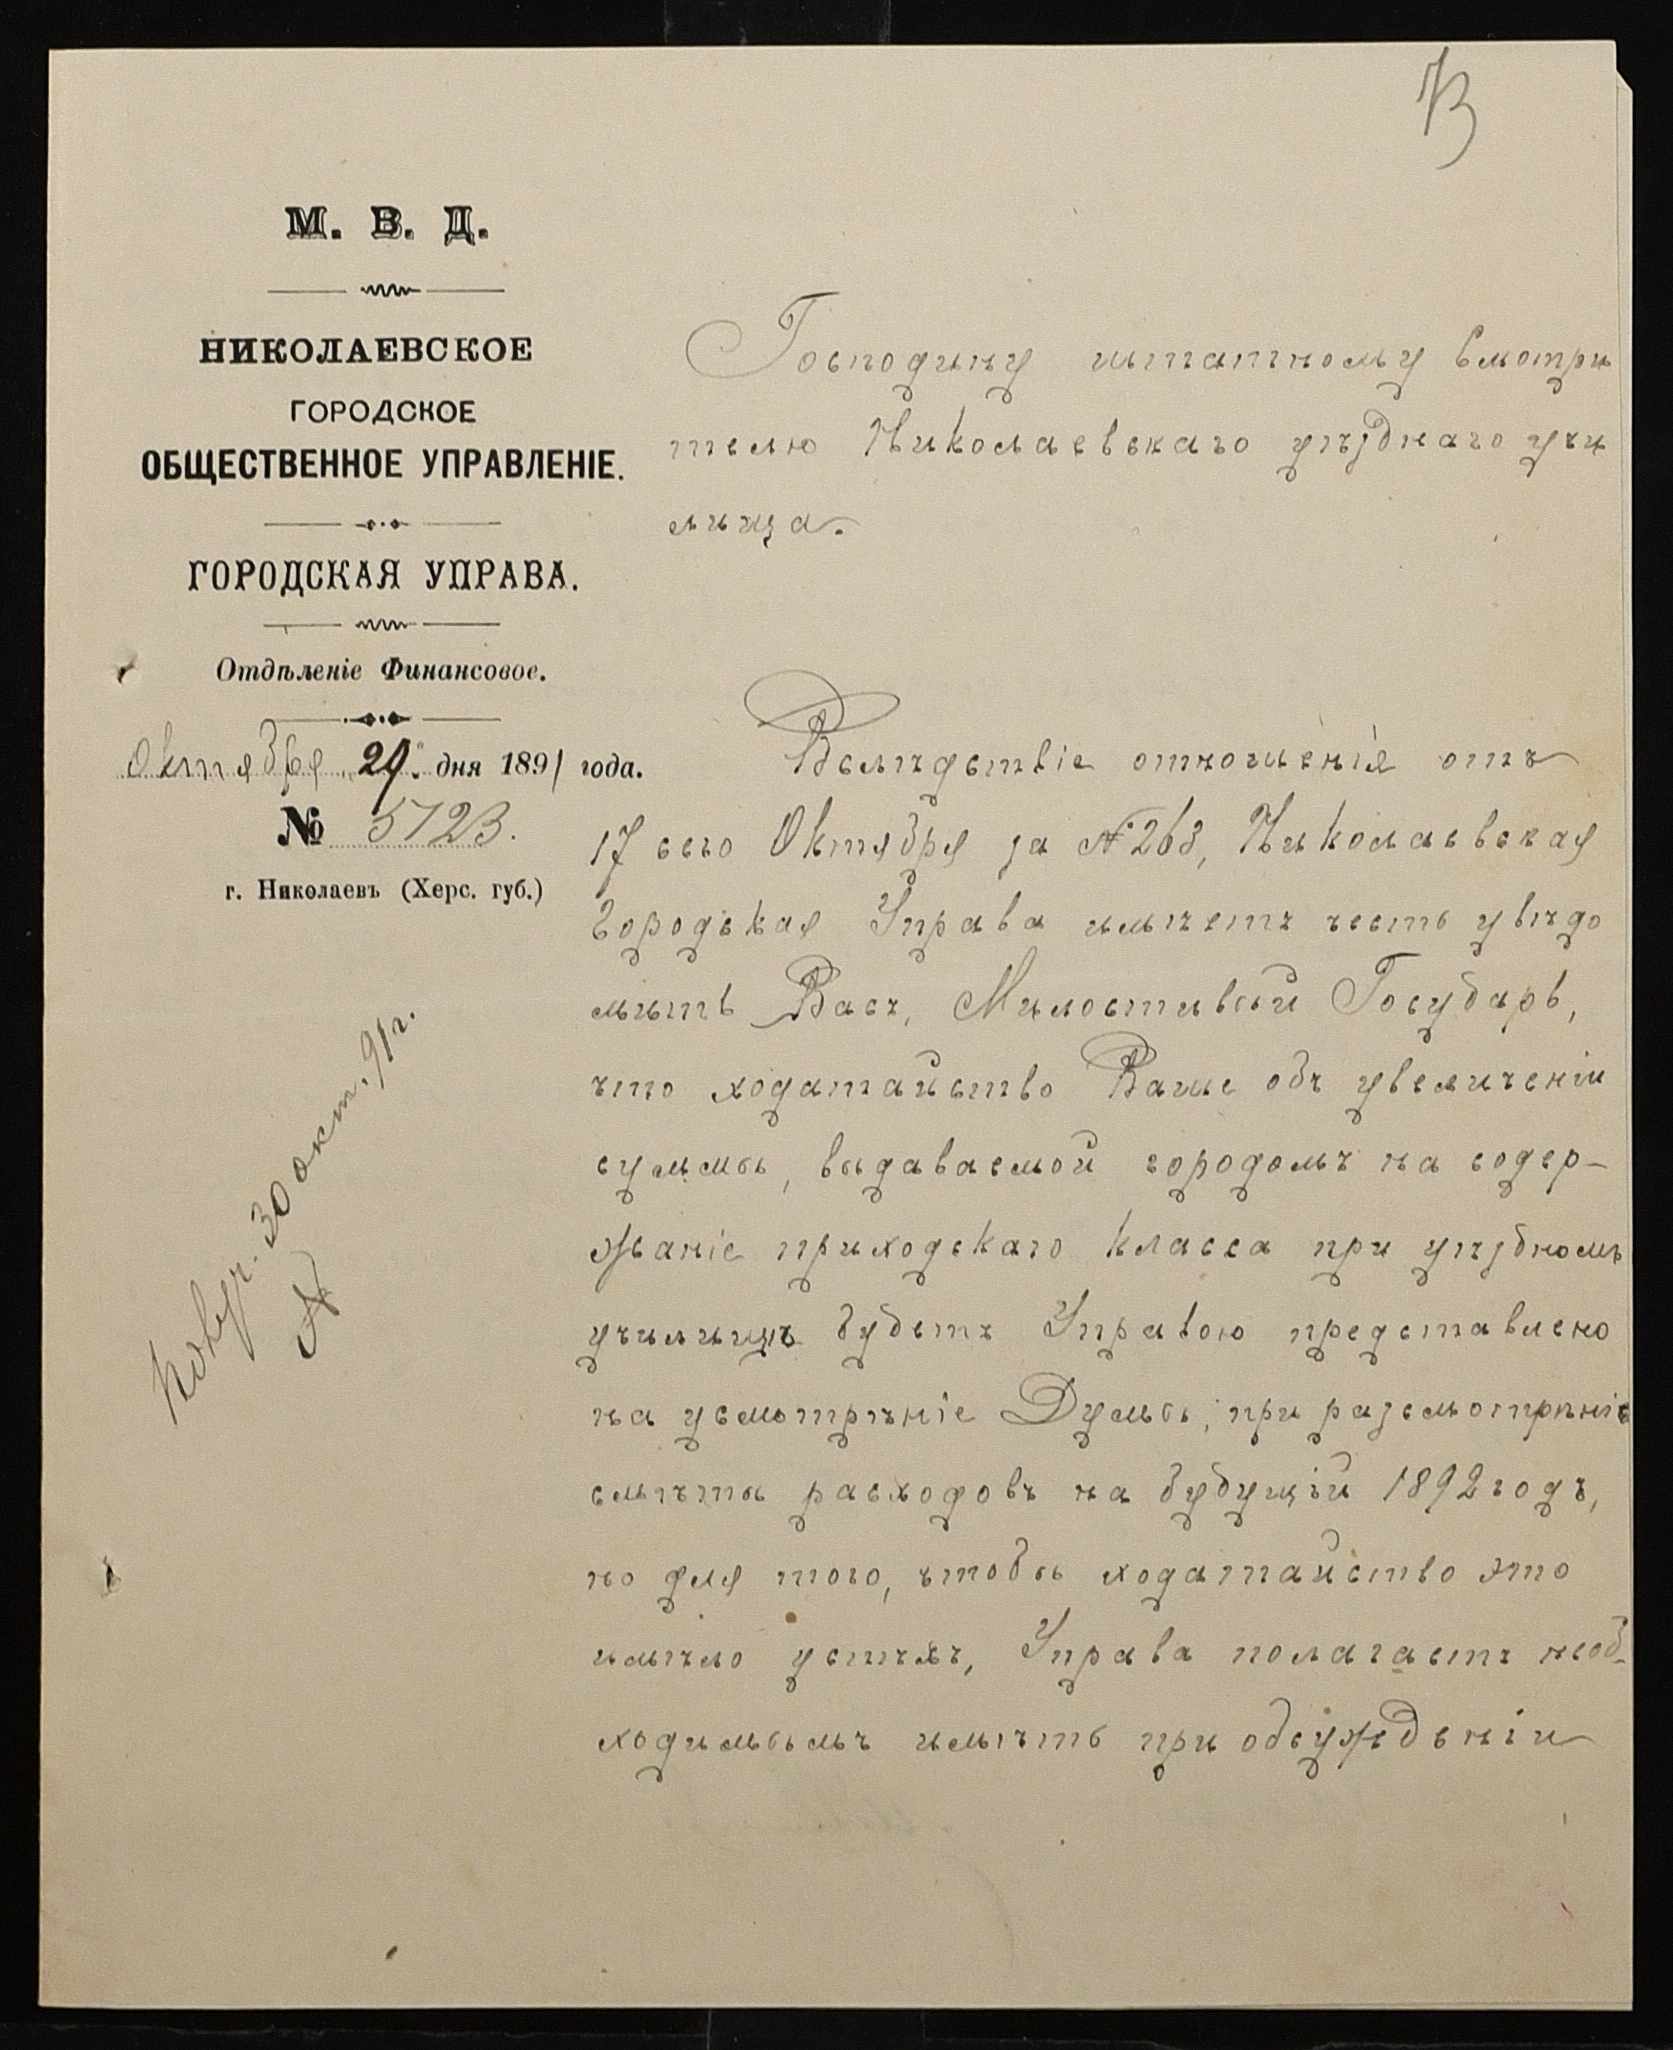 13
М. В. Д.
НИКОЛАЕВСКОЕ
ГОРОДСКОЕ
ОБЩЕСТВЕННОЕ УПРАВЛЕНІЕ.
ГОРОДСКАЯ УПРАВА.
Отдѣленіе Финансовое.
Октября 29 дня 1891 года.
№ 5723.
г. Николаевъ (Херс. губ.)
30 окт. 91 г.
Господину штатному Смотри
телю Николаевскаго уѣзднаго учи
лища.
Вслѣдствіе отношенія отъ
17 сего Октября за № 263, Николаевская
Городская Управа имѣетъ честь увѣдо
мить Васъ, Милостивый Государь,
что ходатайство Ваше объ увеличеніи
суммы, выдаваемой городомъ на содер-
жаніе приходскаго класса при уѣздномъ
училищѣ будетъ Управою представлено
на усмотрѣніе Думы, при разсмотрѣніе
смѣты расходовъ на будущій 1892 годъ,
но для того, чтобы ходатайство это
имѣло успѣхъ, Управа полагаетъ необ-
ходимымъ имѣть при обсужденіи